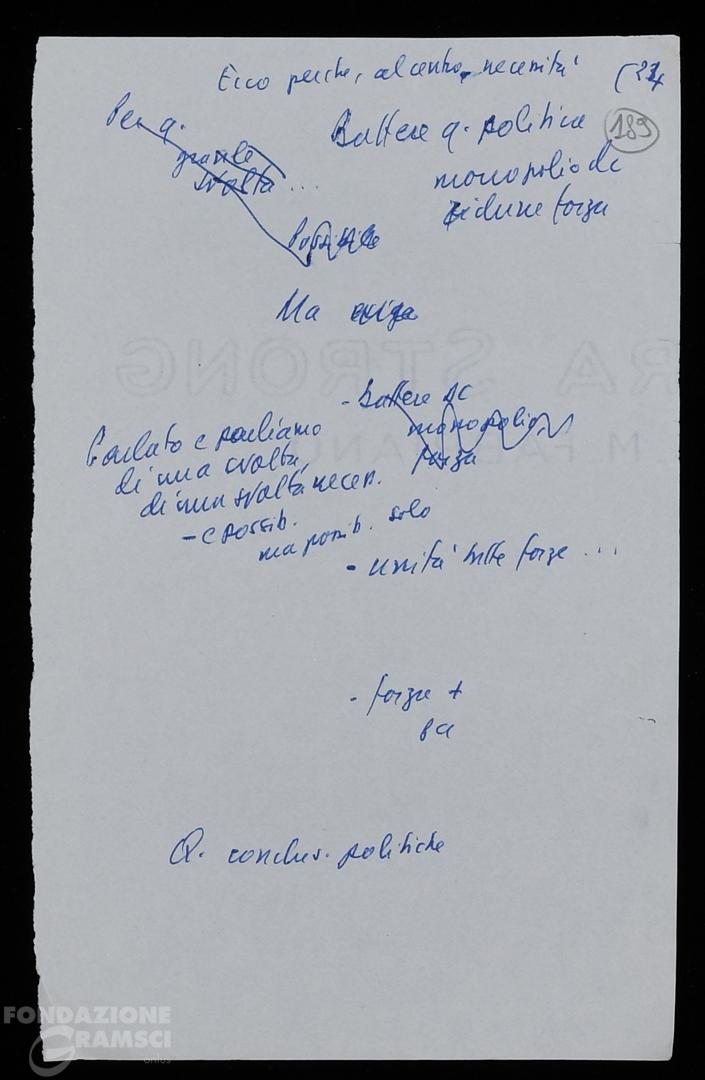 Ecco perché, al centro, necessità
(24
189
Per q.
grande
svolta ...
Battere q. politica
monopolio dc
ridurne forza
Possibile
Ma esige
- battere DC
monopolio
forza
Parlato e parliamo
di una svolta,
di una svolta necess.
- è possib.
ma possib. solo
- unità tutte forze ...
- forza +
pci
Q. conclus. politiche
RA STRONG
M. FABRIANO
FONDAZIONE
GRAMSCI
onlus